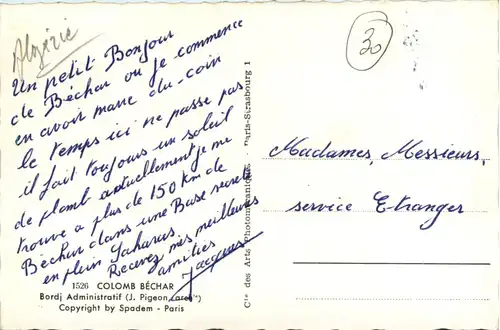 Algérie
30
Un petit Bonjour
de Béchar où je commence
en avoir marre du coin
le temps ici ne passe pas
il fait toujours un soleil
de plomb actuellement je me
trouve a plus de 150 km de
Béchar dans une Base
en plein Sahara.
Recevez mes meilleures
amitiés
Jacques
1526 COLOMB BÉCHAR
Bordj Administratif (J. Pigeon,
Copyright by Spadem - Paris
Cie des Arts Photomécaniques - Paris-Strasbourg 1
Madames, Messieurs,
service Etranger